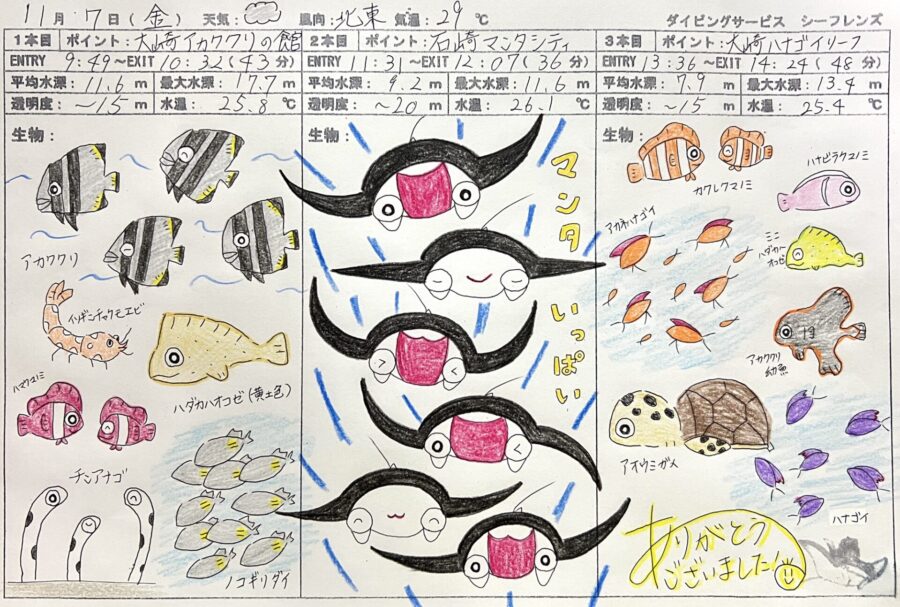 11月 7日(金) 天気: 風向:北東 気温:29℃ ダイビングサービス シーフレンズ
1本目 ポイント:大崎アカククリの館
ENTRY 9:49~EXIT 10:32(43分)
平均水深:11.6 m 最大水深:17.7 m
透明度:~15 m 水温:25.8 ℃
生物:
アカククリ
イソギンチャクモエビ
ハダカハオコゼ(黄土色)
ハマクマノミ
チンアナゴ
ノコギリダイ
2本目 ポイント:石崎マンタシティ
ENTRY 11:31~EXIT 12:07(36分)
平均水深:9.2 m 最大水深:11.6 m
透明度:~20 m 水温:26.1 ℃
生物:
マンタ
いっぱい
3本目 ポイント:大崎ハナゴイリーフ
ENTRY 13:36~EXIT 14:24(48分)
平均水深:7.9 m 最大水深:13.4 m
透明度:~15 m 水温:25.4 ℃
生物:
カクレクマノミ
ハナビラクマノミ
アカネハナゴイ
ミニ
ハダカハ
オコゼ
アカククリ
幼魚
アオウミガメ
ハナゴイ
ありがとう
ございました!